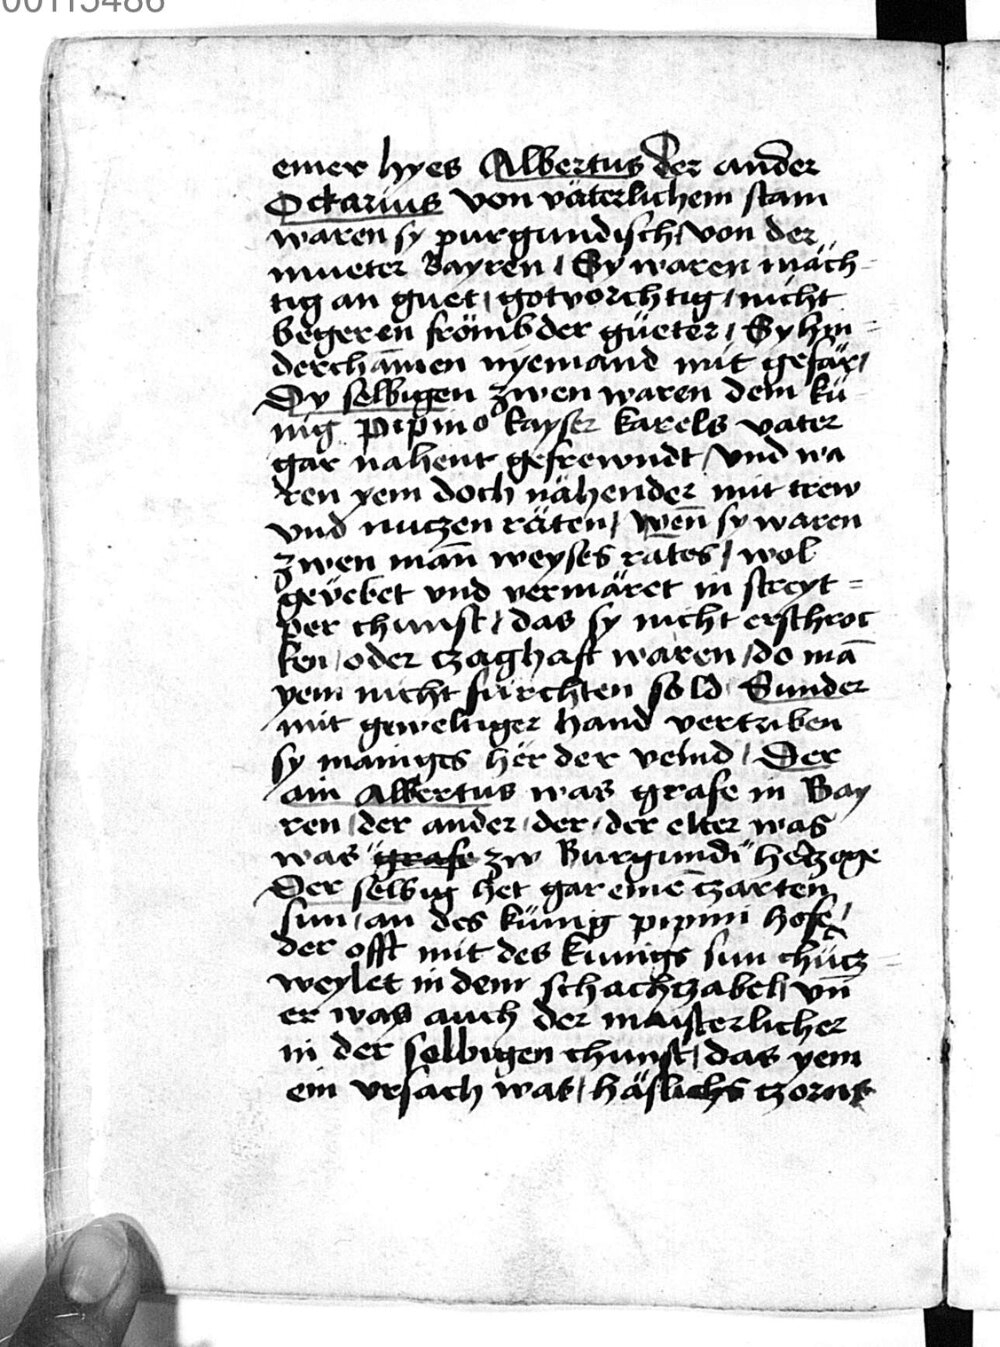 00115486
einer hyes Albertus der ander
Ockarius von väterlichem stam
waren sy purgundisch / von der
mueter Bayren / Sy waren mäch=
tig an guet / gotvorchtig / nicht
begeren frömbder güeter / Sy hin=
derchamen nyemand mit gefär /
Dy selbigen zwen waren dem kü
nig pipino kayser karels vater
gar nahent gefrewndt / vnd wa
ren yem doch nähender mit trew
vnd nutzen räten / wen̄ sy waren
zwen man̄ weyses rates / wol
geüebet vnd vermäret in streyt=
per chunst / das sy nicht erschroc
ken / oder czaghaft waren / do mā
yem nicht fürchten sold Sunder
mit geweltiger hand vertriben
sy manigs her der veind / Der
ain Albertus was grafe in Bay
ren / der ander / der / der elter was
was grafe zw Burgundi hertzoge
Der selbig het gar einē czarten
sun / an des künig pipini hofe /
der offt mit des kunigs sun chürcz=
weylet in dem schachczabel / vn̄
er was auch der maisterlicher
in der selbigen chunst / das yem
ein vrsach was / häslichs czorns